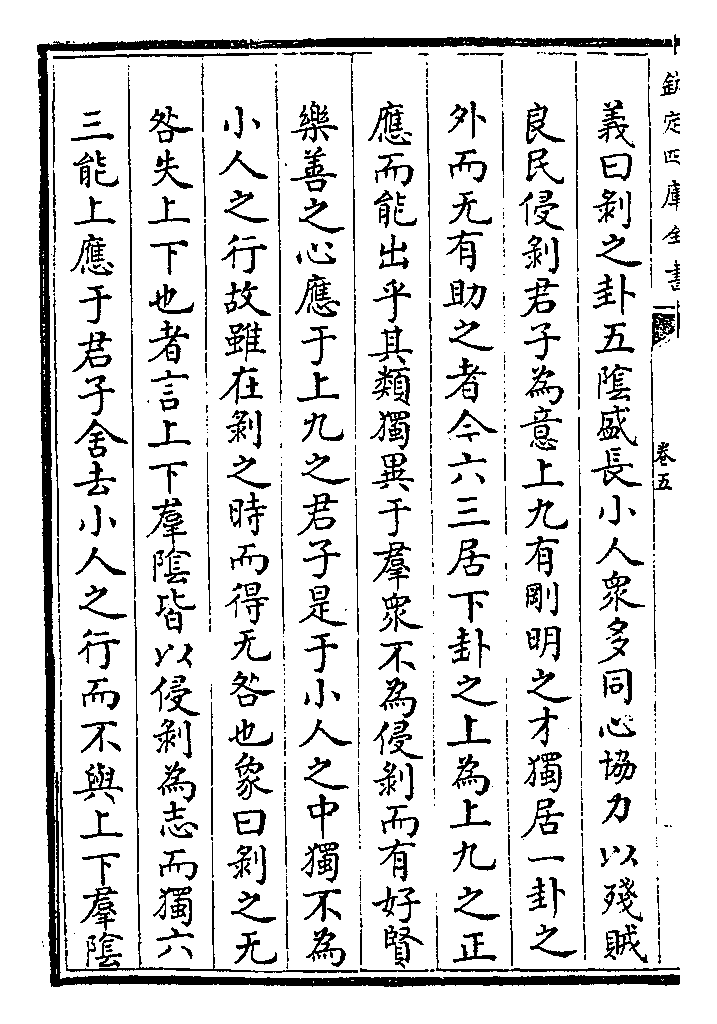 欽定四庫全書
卷五
義曰剝之卦五隂盛長小人衆多同心協力以殘賊
良民侵剝君子為意上九有剛明之才獨居一卦之
外而无有助之者今六三居下卦之上為上九之正
應而能出乎其類獨異于羣衆不為侵剝而有好賢
樂善之心應于上九之君子是于小人之中獨不為
小人之行故雖在剝之時而得无咎也象曰剝之无
咎失上下也者言上下羣隂皆以侵剝為志而獨六
三能上應于君子舍去小人之行而不與上下羣隂